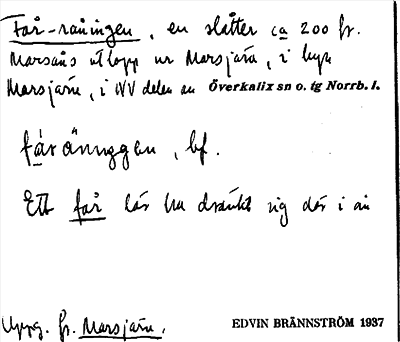 Får-råningen, en slåtter ca 200 fr.
Marsåns utlopp ur Marsjärv, i byn
Marsjärv, i NV delen av Överkalix sn o. tg Norrb. l.
fårånıŋgən, bf.
Ett får lär ha dränkt sig där i ån
Uppg. fr. Marsjärv.
EDVIN BRÄNNSTRÖM 1937